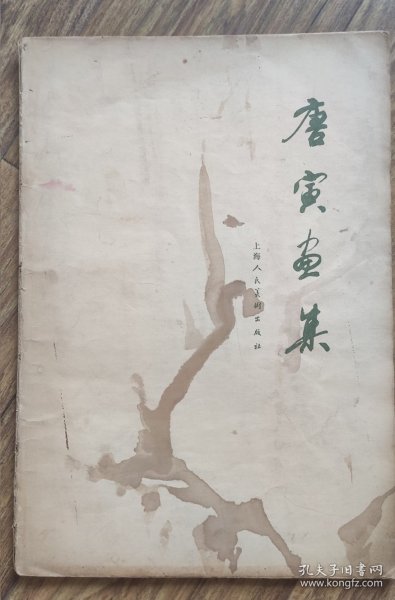 唐寅画集
上海人民美術出版社
孔夫子旧书网
www.kongfz.com